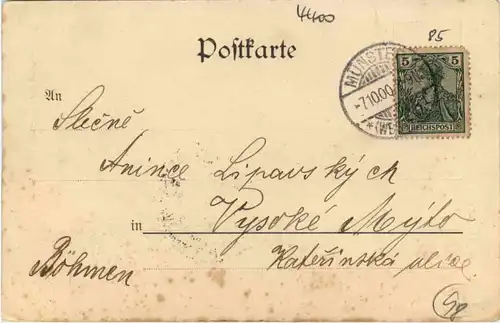 4400
85
Postkarte
MÜNSTE
-7.10.00.
*(WE
5 5
REICHSPOST
An
Slečně
Anince Lipavských
in Vysoké Mýto
Kateřinská ulice.
Böhmen